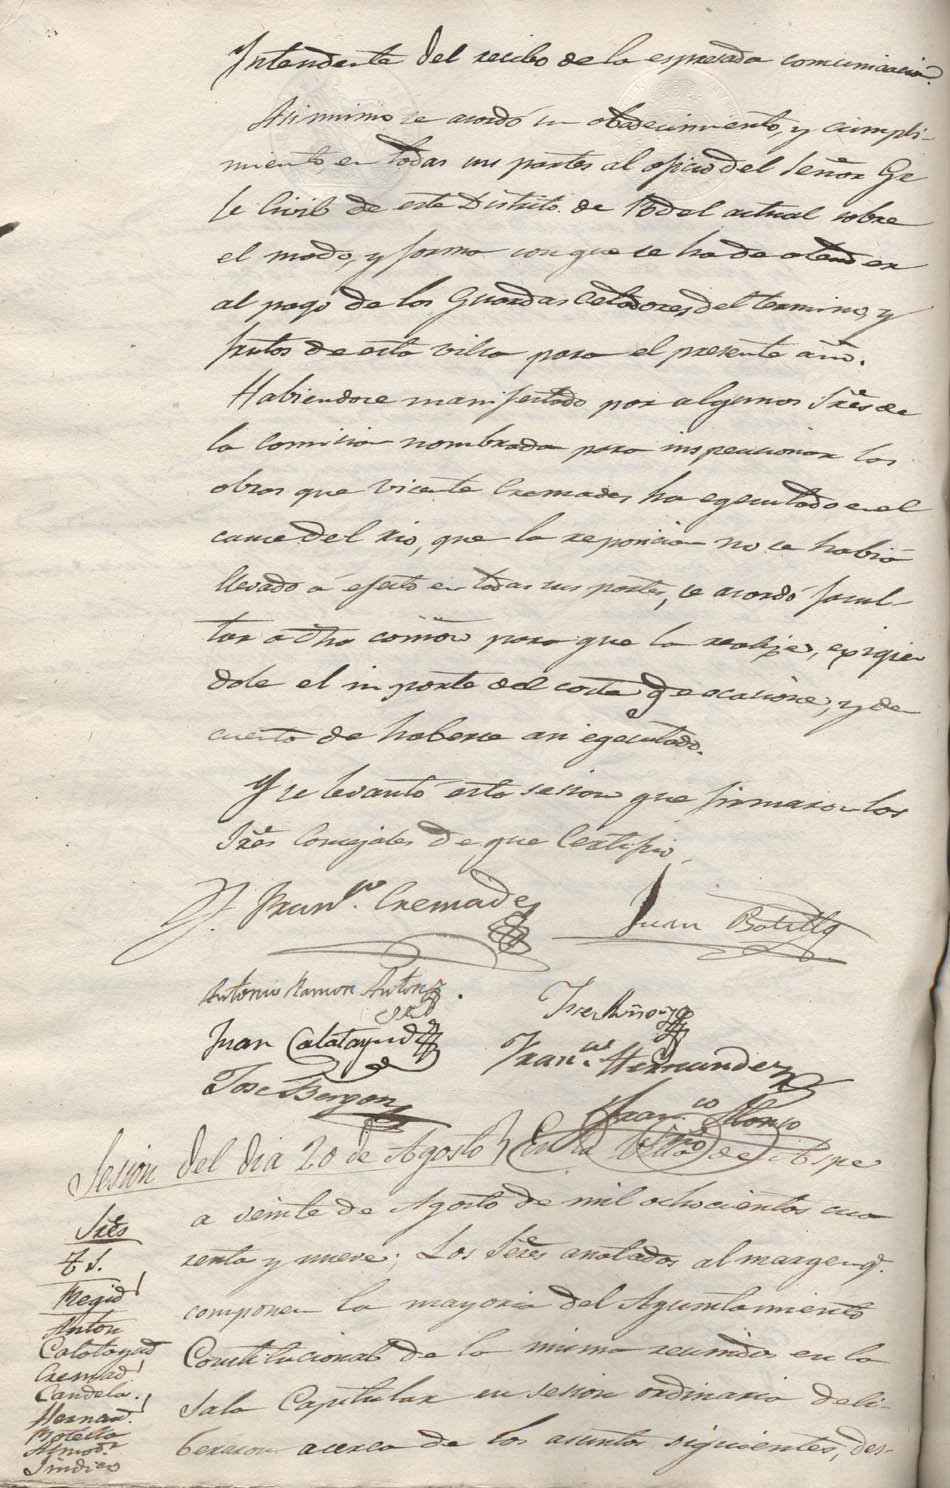 Intendente del recibo de la espresada comunicacion.
Asi mismo se acordó su obedecimiento, y cumpli-
miento en todas sus partes al oficio del Señor Ge
fe Civil de este Distrito de del actual sobre
el modo, y forma con que se ha de atender
al pago de los Guardas Celadores del termino, y
frutos de esta villa para el presente año.
Habiendose manifestado por algunos Sres de
la Comision nombrada para inspeccionar las
obras que Vicente Cremades ha egecutado en el
cauce del rio, que la reposicion no se habia
llevado á efecto en todas sus partes, se acordó facul-
tar a dha comon para que la realize, exigien
dole el importe del coste q.e ocasione, y de
cuenta de haberse asi egecutado.
Y se levantó esta sesion que firmaron los
Sres Concejales de que Certifico.
P. Franco. Cremades
Juan Botella
Antonio Ramon Anton
Jose Muñoz
Juan Calatayud
Franco. Hernandez
Jose Bergon
Franco Alonso
Srio
Sesion del dia 20 de Agosto } En la Villa de Aspe
a veinte de Agosto de mil ochocientos cua
renta y nueve; Los Sres anotados al margen q.
componen la mayoria del Ayuntamiento
Constitucional de la misma reunidos en la
Sala Capitular en sesion ordinaria deli-
beraron acerca de los asuntos siguientes, des-
Sres
T. 1.
Regid
Anton
Calatayud
Cremad
Candela.
Hernand.
Botella
Almod.r
Sindico